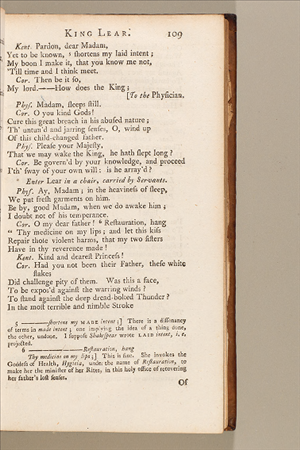 KING LEAR. 109
Kent. Pardon, dear Madam,
Yet to be known, 5 shortens my laid intent;
My boon I make it, that you know me not,
'Till time and I think meet.
Cor. Then be it so,
My lord.——How does the King;
[To the Physician.
Phys. Madam, sleeps still.
Cor. O you kind Gods!
Cure this great breach in his abused nature;
Th' untun'd and jarring senses, O, wind up
Of this child-changed father.
Phys. Please your Majesty,
That we may wake the King, he hath slept long?
Cor. Be govern'd by your knowledge, and proceed
I'th' sway of your own will: is he array'd?
Enter Lear in a chair, carried by Servants.
Phys. Ay, Madam; in the heaviness of sleep,
We put fresh garments on him.
Be by, good Madam, when we do awake him;
I doubt not of his temperance.
Cor. O my dear father! 6 Restauration, hang
" Thy medicine on my lips; and let this kiss
Repair those violent harms, that my two sisters
Have in thy reverence made!
Kent. Kind and dearest Princess!
Cor. Had you not been their Father, these white
flakes
Did challenge pity of them. Was this a face,
To be expos'd against the warring winds?
To stand against the deep dread-bolted Thunder?
In the most terrible and nimble Stroke
5 ——shortens my MADE intent;] There is a dissonancy
of terms in made intent; one implying the idea of a thing done,
the other, undone. I suppose Shakespear wrote LAID intent, i. e.
projected.
6 ——Restauration, hang
Thy medicine on my lips;] This is fine. She invokes the
Goddess of Health, Hygieia, under the name of Restauration, to
make her the minister of her Rites, in this holy office of recovering
her father's lost senses.
Of